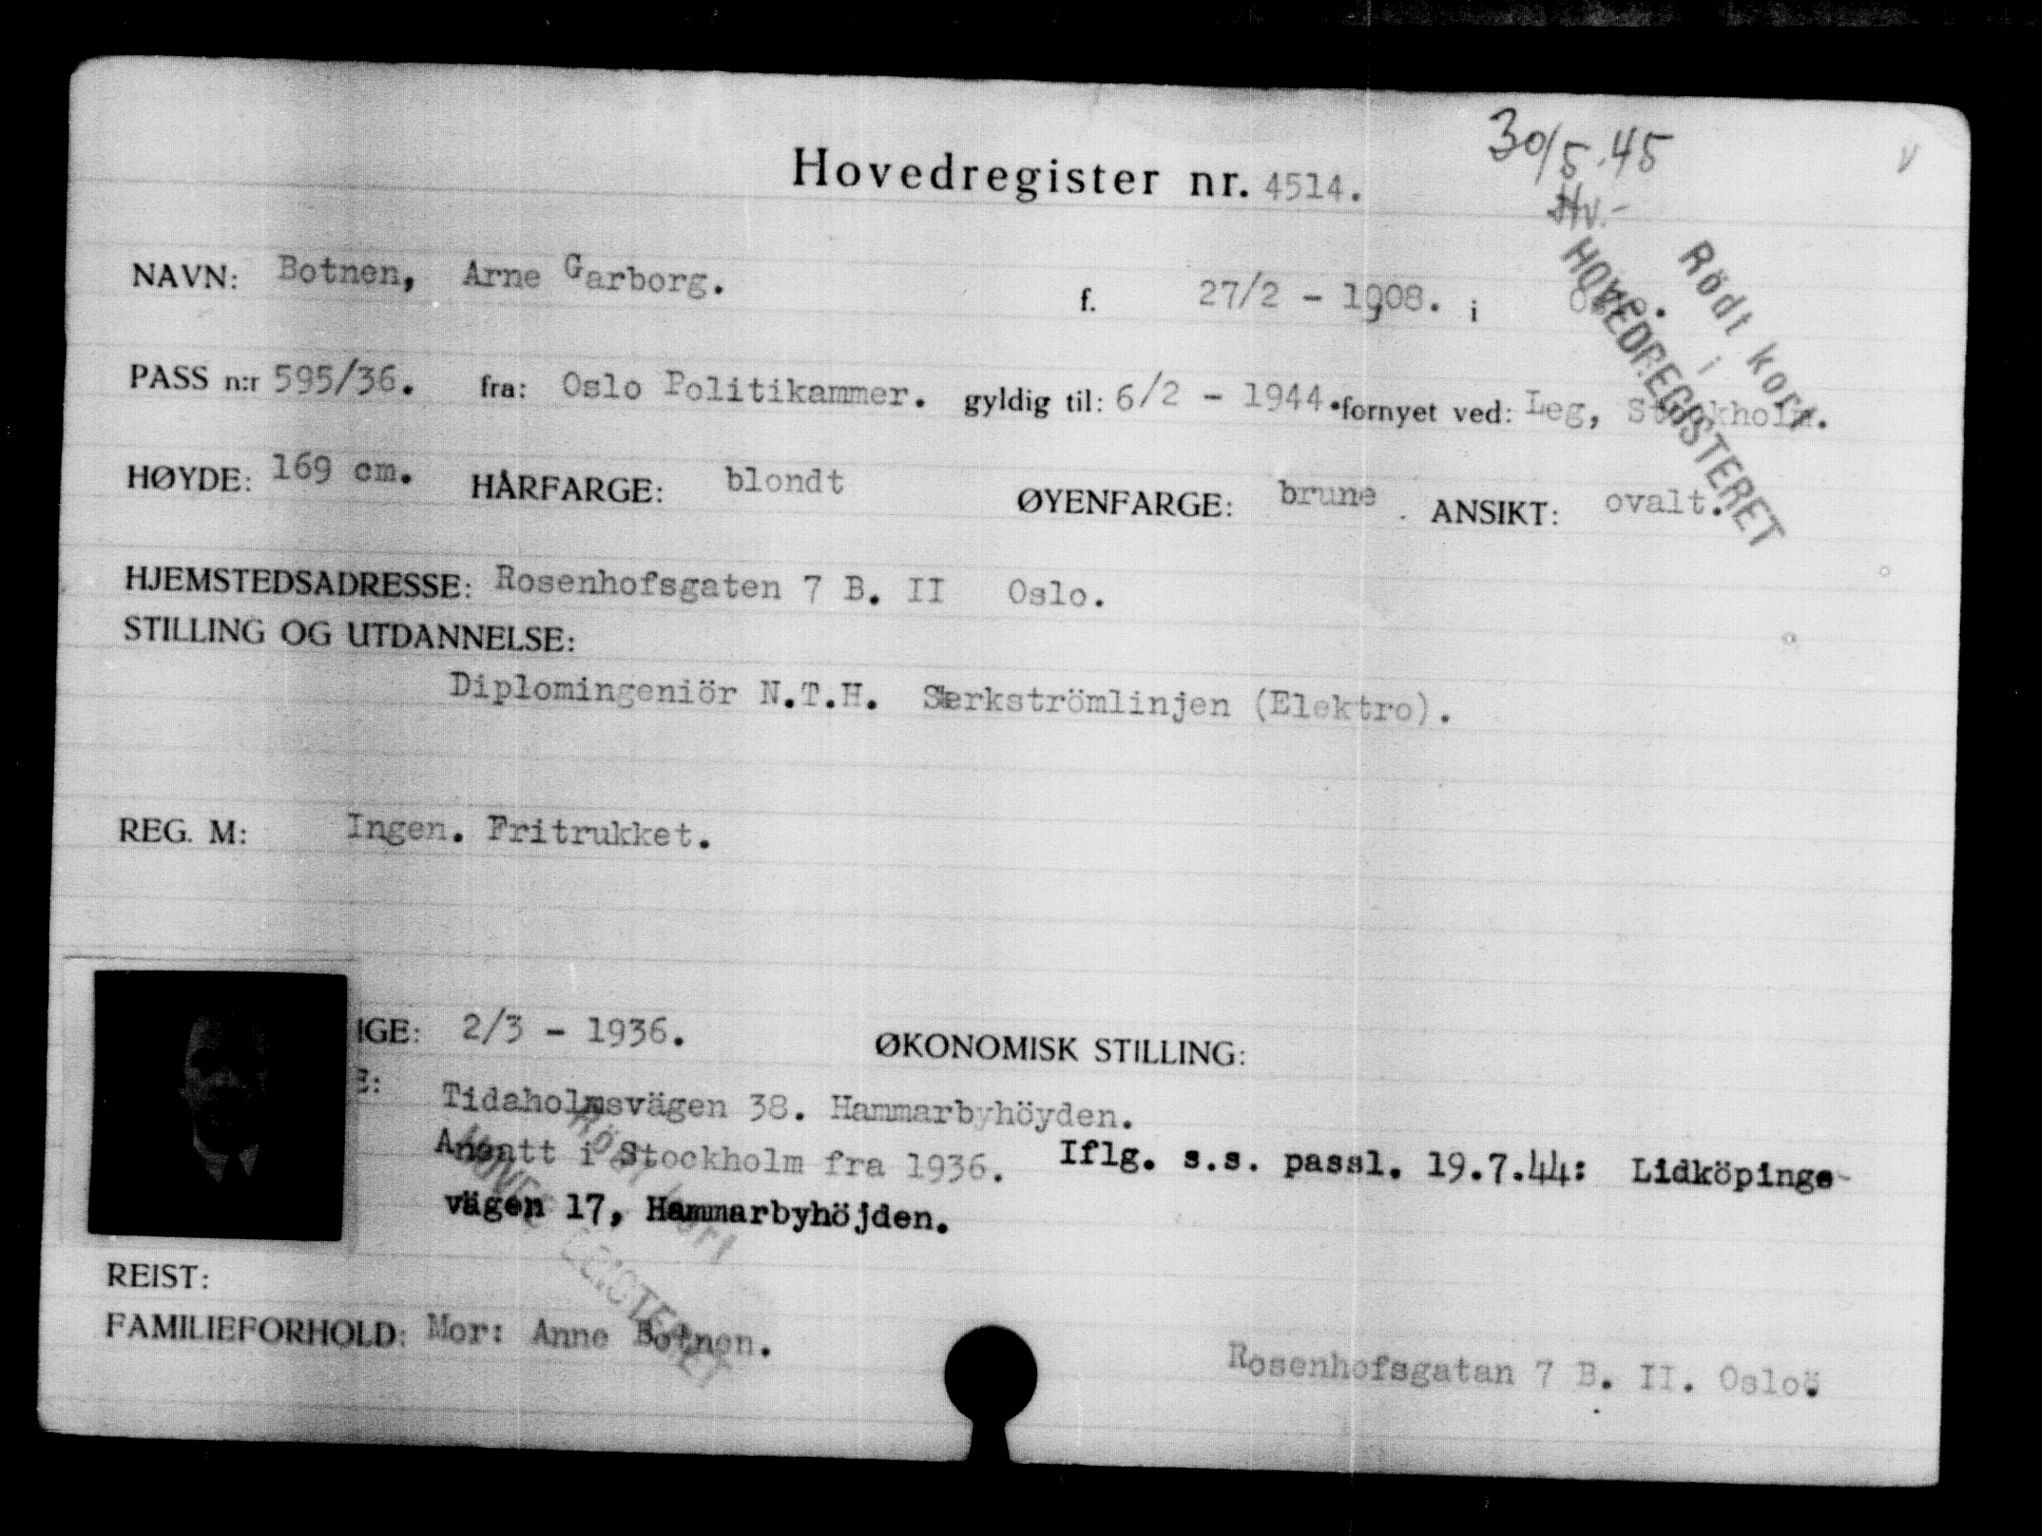 30/5.45
Hv.-
Hovedregister nr. 4514.
Rödt kort
i
HOVEDREGISTERET
NAVN: Botnen, Arne Garborg. f. 27/2 - 1908. i
PASS n:r 595/36. fra: Oslo Politikammer. gyldig til: 6/2 - 1944. fornyet ved: Leg, Stockholm.
HØYDE: 169 cm. HÅRFARGE: blondt ØYENFARGE: brune ANSIKT: ovalt.
HJEMSTEDSADRESSE: Rosenhofsgaten 7 B. II Oslo.
STILLING OG UTDANNELSE:
Diplomingeniör N.T.H. Sterkströmlinjen (Elektro).
REG. M: Ingen. Fritrukket.
IGE: 2/3 - 1936. ØKONOMISK STILLING:
E: Tidaholmsvägen 38. Hammarbyhöyden.
Ansatt i Stockholm fra 1936. Iflg. s.s. passl. 19.7.44: Lidköpings-
vägen 17, Hammarbyhöjden.
Rödt kort
HOVEDREGISTERET
REIST:
FAMILIEFORHOLD: Mor: Anne Botnen.
Rosenhofsgatan 7 B. II. Oslo